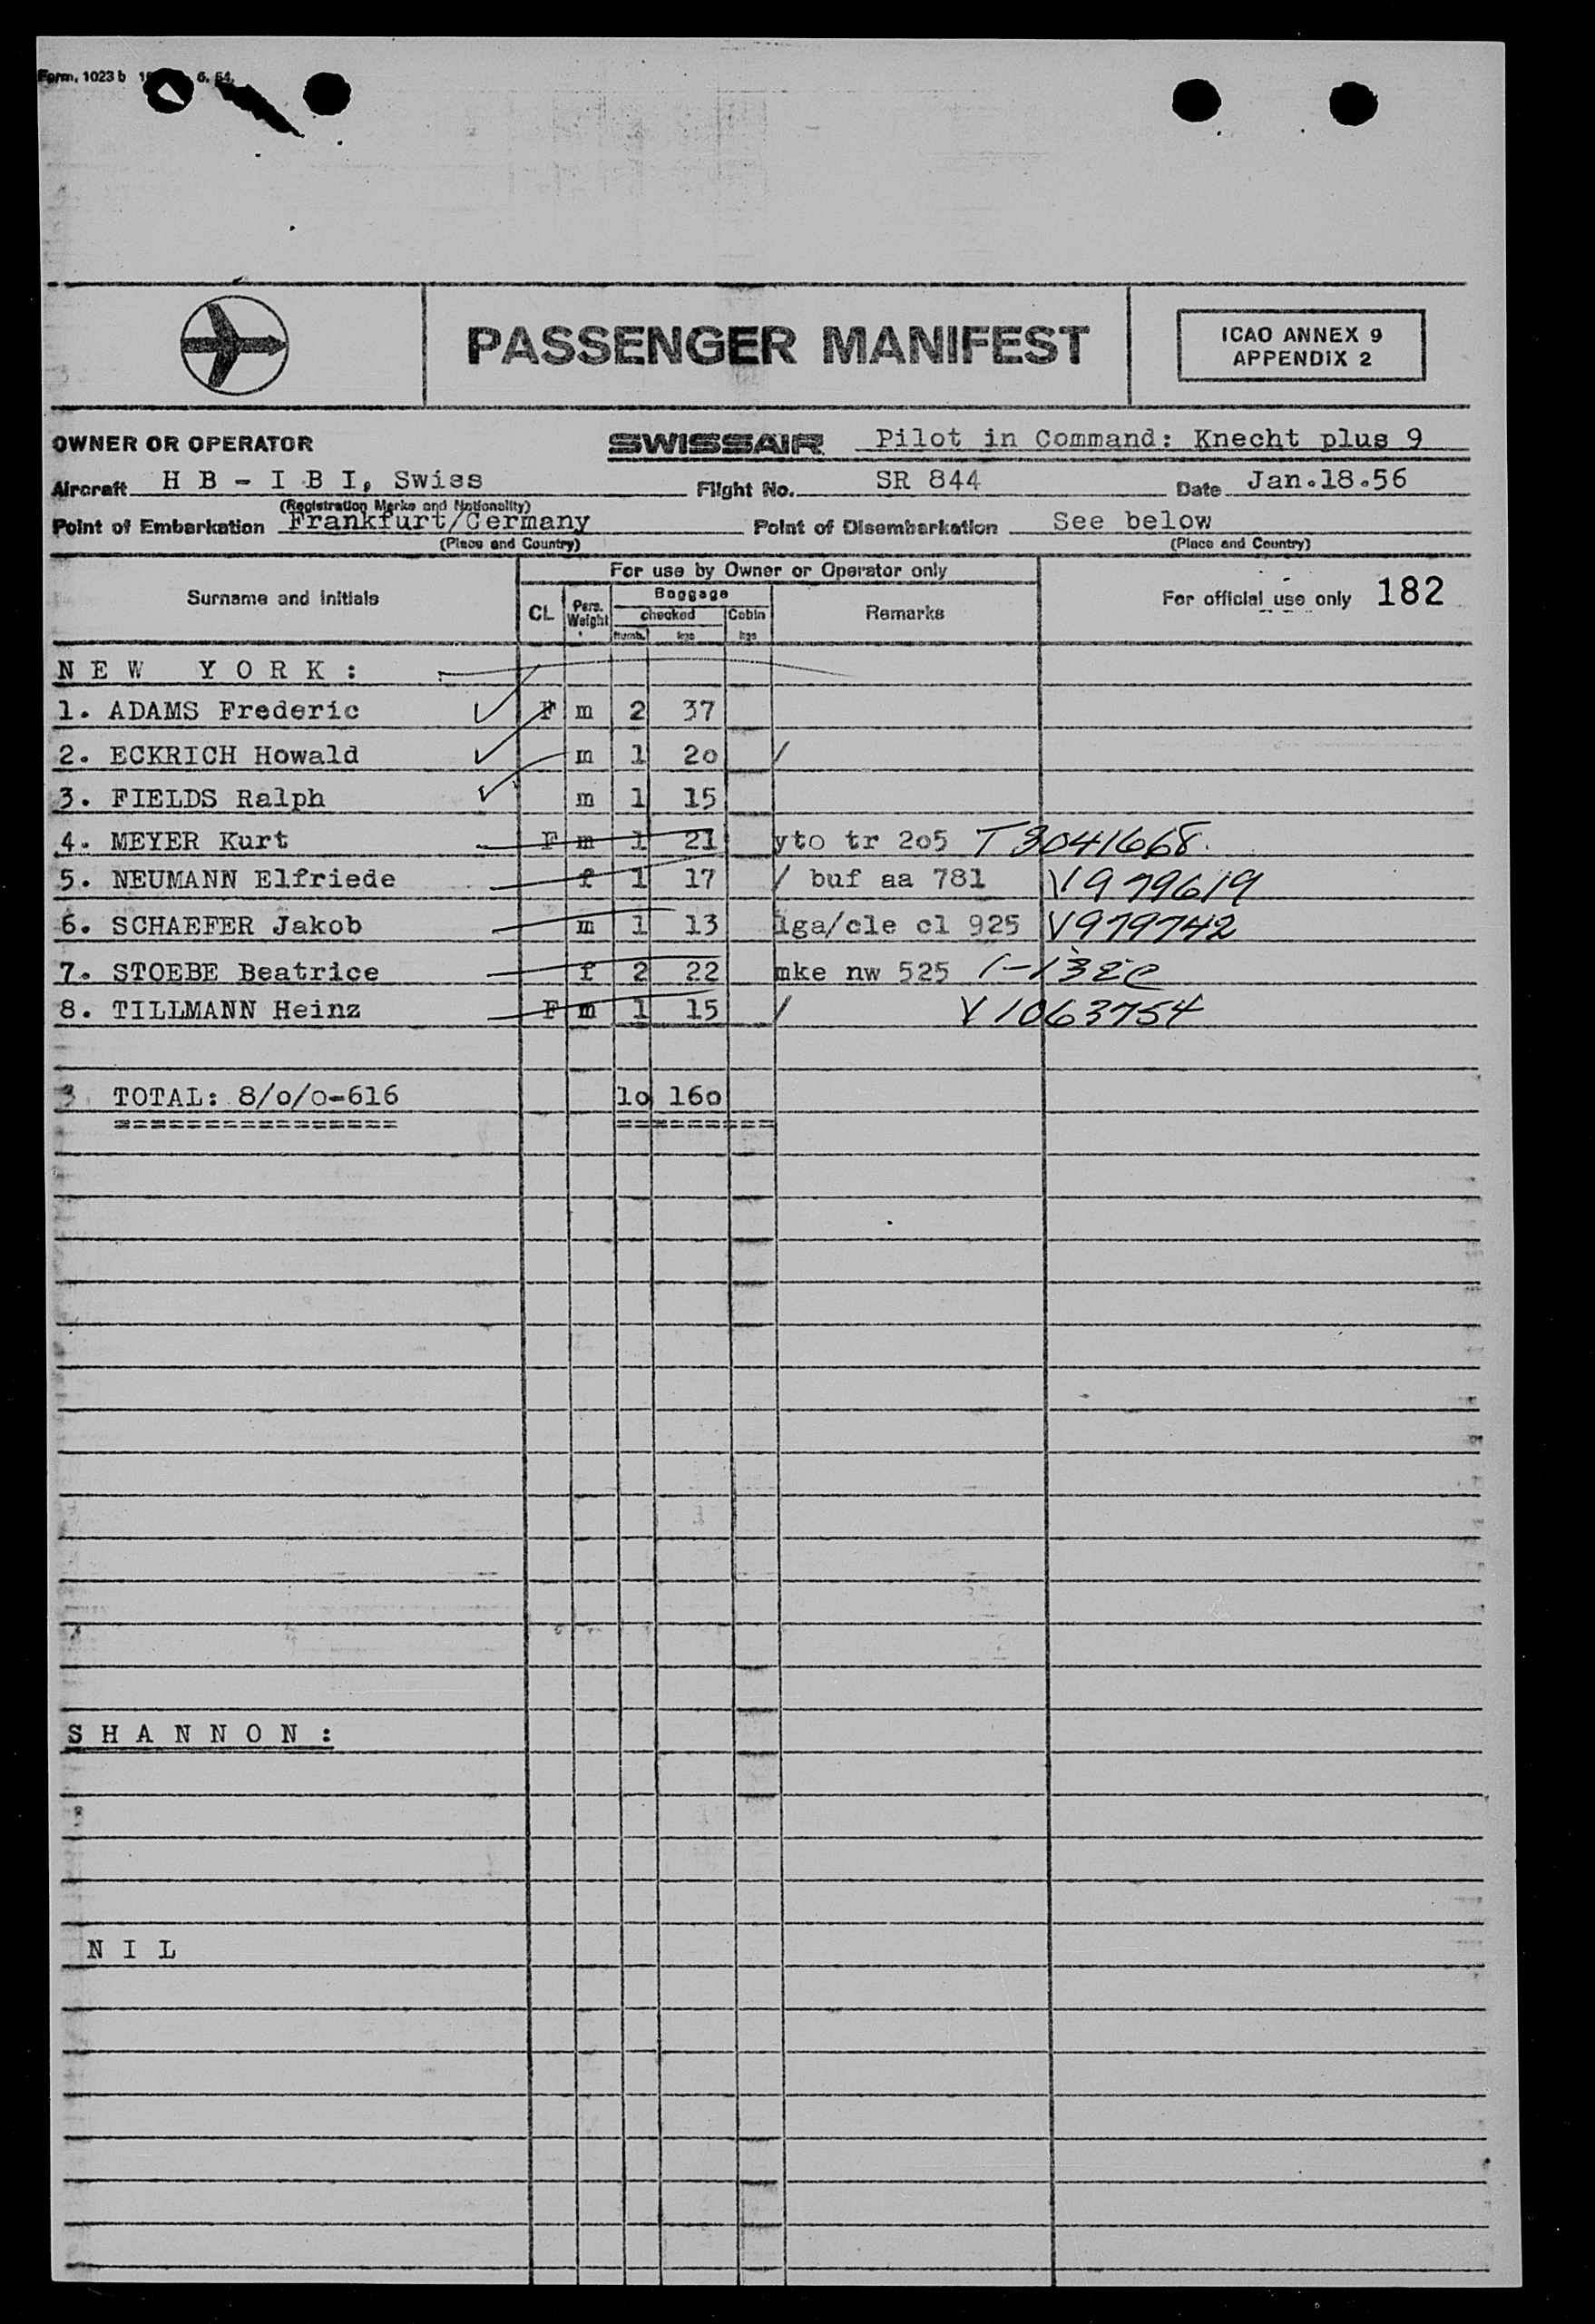 Form. 1023 b 6. 54.
PASSENGER MANIFEST
ICAO ANNEX 9
APPENDIX 2
OWNER OR OPERATOR SWISSAIR Pilot in Command: Knecht plus 9
Aircraft H B - I B I, Swiss Flight No. SR 844 Date Jan.18.56
(Registration Marks and Nationality)
Point of Embarkation Frankfurt/Germany Point of Disembarkation See below
(Place and Country) (Place and Country)
For use by Owner or Operator only
Surname and initials CL Pers. Weight Baggage checked Numb. kgs Cabin kgs Remarks For official use only 182
N E W Y O R K :
1. ADAMS Frederic F m 2 37
2. ECKRICH Howald m 1 20 /
3. FIELDS Ralph m 1 15
4. MEYER Kurt F m 1 21 yto tr 2o5 T 3041668.
5. NEUMANN Elfriede f 1 17 / buf aa 781 V979619
6. SCHAEFER Jakob m 1 13 iga/cle cl 925 V979742
7. STOEBE Beatrice f 2 22 mke nw 525
8. TILLMANN Heinz F m 1 15 / V1063754
TOTAL: 8/o/o-616 1o 16o
================ =========
S H A N N O N :
N I L